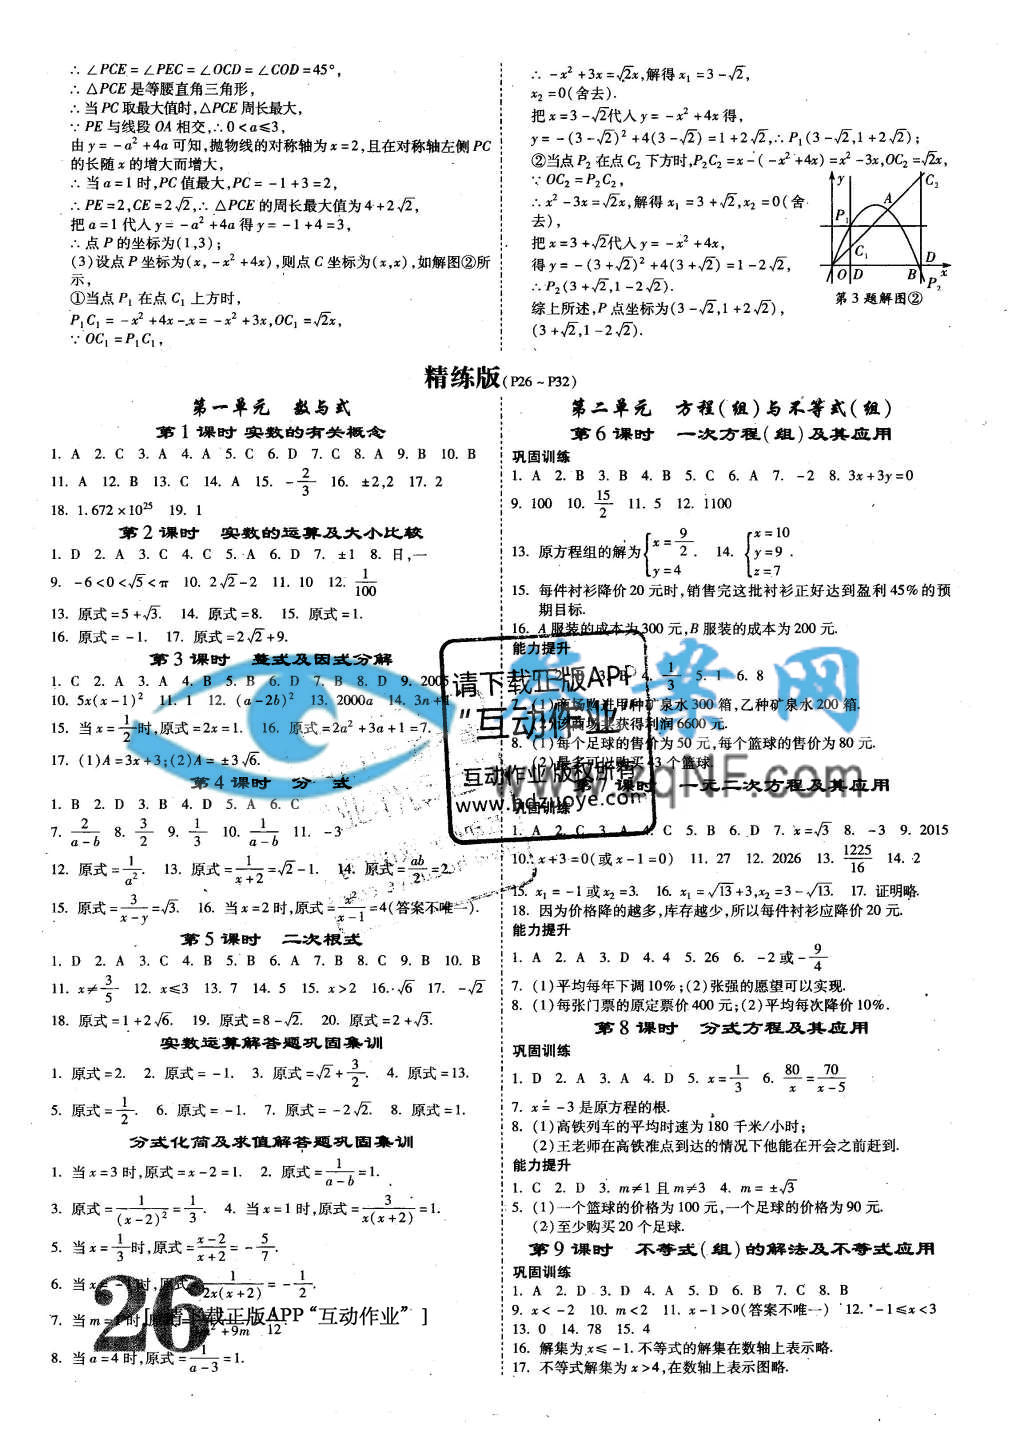 ∴ ∠PCE = ∠PEC = ∠OCD = ∠COD = 45°,
∴ △PCE 是等腰直角三角形,
∴ 当 PC 取最大值时, △PCE 周长最大,
∵ PE 与线段 OA 相交, ∴ 0 < a ≤ 3,
由 y = -a² + 4a 可知, 抛物线的对称轴为 x = 2, 且在对称轴左侧 PC
的长随 x 的增大而增大,
∴ 当 a = 1 时, PC 值最大, PC = -1 + 3 = 2,
∴ PE = 2, CE = 2√2, ∴ △PCE 的周长最大值为 4 + 2√2,
把 a = 1 代入 y = -a² + 4a 得 y = -1 + 4 = 3,
∴ 点 P 的坐标为 (1,3);
(3)设点 P 坐标为 (x, -x² + 4x), 则点 C 坐标为 (x,x), 如解图②所
示,
①当点 P₁ 在点 C₁ 上方时,
P₁C₁ = -x² + 4x - x = -x² + 3x, OC₁ = √2x,
∵ OC₁ = P₁C₁,
∴ -x² + 3x = √2x, 解得 x₁ = 3 - √2,
x₂ = 0(舍去).
把 x = 3 - √2代入 y = -x² + 4x 得,
y = -(3 - √2)² + 4(3 - √2) = 1 + 2√2, ∴ P₁(3 - √2, 1 + 2√2);
②当点 P₂ 在点 C₂ 下方时, P₂C₂ = x - (-x² + 4x) = x² - 3x, OC₂ = √2x,
∵ OC₂ = P₂C₂,
∴ x² - 3x = √2x, 解得 x₁ = 3 + √2, x₂ = 0(舍
去),
把 x = 3 + √2代入 y = -x² + 4x,
得 y = -(3 + √2)² + 4(3 + √2) = -1 - 2√2,
∴ P₂(3 + √2, -1 - 2√2).
综上所述, P 点坐标为 (3 - √2, 1 + 2√2),
(3 + √2, -1 - 2√2).
y C₂ A P₁ C₁ O D B D x P₂
第 3 题解图②
精练版(P26 ~ P32)
第一单元 数与式
第 1 课时 实数的有关概念
1. A 2. C 3. A 4. A 5. C 6. D 7. C 8. A 9. B 10. B
11. A 12. B 13. C 14. A 15. -2/3 16. ±2,2 17. 2
18. 1.672 × 10²⁵ 19. 1
第 2 课时 实数的运算及大小比较
1. D 2. A 3. C 4. C 5. A 6. D 7. ±1 8. 日,一
9. -6 < 0 < √5 < π 10. 2√2 - 2 11. 10 12. 1/100
13. 原式 = 5 + √3. 14. 原式 = 8. 15. 原式 = 1.
16. 原式 = -1. 17. 原式 = 2√2 + 9.
第 3 课时 整式及因式分解
1. C 2. A 3. A 4. B 5. B 6. D 7. B 8. D 9. 2005
10. 5x(x - 1)² 11. 1 12. (a - 2b)² 13. 2000a 14. 3n + 1
15. 当 x = 1/2时, 原式 = 2x = 1. 16. 原式 = 2a² + 3a + 1 = 7.
17. (1)A = 3x + 3; (2)A = ±3√6.
第 4 课时 分 式
1. B 2. D 3. B 4. D 5. A 6. C
7. 2/(a-b) 8. 3/2 9. 1/3 10. 1/(a-b) 11. -3
12. 原式 = 1/a². 13. 原式 = 1/(x+2) = √2 - 1. 14. 原式 = ab/2 = 2.
15. 原式 = 3/(x-y) = √3. 16. 当 x = 2 时, 原式 = x²/(x-1) = 4(答案不唯一).
第 5 课时 二次根式
1. D 2. A 3. C 4. B 5. B 6. A 7. B 8. C 9. B 10. B
11. x ≠ 3/5 12. x ≤ 3 13. 7 14. 5 15. x > 2 16. √6 17. -√2
18. 原式 = 1 + 2√6. 19. 原式 = 8 - √2. 20. 原式 = 2 + √3.
实数运算解答题巩固集训
1. 原式 = 2. 2. 原式 = -1. 3. 原式 = √2 + 3/2. 4. 原式 = 13.
5. 原式 = 1/2. 6. 原式 = -1. 7. 原式 = -2√2. 8. 原式 = 1.
分式化简及求值解答题巩固集训
1. 当 x = 3 时, 原式 = x - 2 = 1. 2. 原式 = 1/(a-b) = 1.
3. 原式 = 1/(x-2)² = 1/3. 4. 当 x = 1 时, 原式 = 3/x(x+2) = 1.
5. 当 x = 1/3时, 原式 = (x-2)/(x+2) = -5/7.
6. 当 x = -1时, 原式 = 1/2x(x+2) = -1/2.
7. 当 m = 时, 原式 +9m 12
8. 当 a = 4 时, 原式 = 1/(a-3) = 1.
第二单元 方程(组)与不等式(组)
第 6 课时 一次方程(组)及其应用
巩固训练
1. A 2. B 3. B 4. B 5. C 6. A 7. -2 8. 3x + 3y = 0
9. 100 10. 15/2 11. 5 12. 1100
13. 原方程组的解为{x = 9/2, y = 4 14. {x = 10 y = 9 z = 7.
15. 每件衬衫降价 20 元时, 销售完这批衬衫正好达到盈利 45% 的预
期目标.
16. A 服装的成本为 300 元, B 服装的成本为 200 元.
能力提升
2. D 3. B 4. 1/3 5. 1 6. 8
7. (1)商场购进甲种矿泉水 300 箱, 乙种矿泉水 200 箱.
(2)该商场共获得利润 6600 元.
8. (1)每个足球的售价为 50 元, 每个篮球的售价为 80 元.
(2)最多可以购买 43 个篮球.
第 7 课时 一元二次方程及其应用
巩固训练
1. A 2. C 3. A 4. C 5. B 6. D 7. x = √3 8. -3 9. 2015
10. x + 3 = 0(或 x - 1 = 0) 11. 27 12. 2026 13. 1225/16 14. 2
15. x₁ = -1 或 x₂ = 3. 16. x₁ = √13 + 3, x₂ = 3 - √13. 17. 证明略.
18. 因为价格降的越多, 库存越少, 所以每件衬衫应降价 20 元.
能力提升
1. A 2. A 3. D 4. 4 5. 26 6. -2 或 -9/4
7. (1)平均每年下调 10%; (2)张强的愿望可以实现.
8. (1)每张门票的原定票价 400 元; (2)平均每次降价 10%.
第 8 课时 分式方程及其应用
巩固训练
1. D 2. A 3. A 4. D 5. x = 1/3 6. 80/x = 70/(x-5)
7. x = -3 是原方程的根.
8. (1)高铁列车的平均时速为 180 千米/小时;
(2)王老师在高铁准点到达的情况下他能在开会之前赶到.
能力提升
1. C 2. D 3. m ≠ 1 且 m ≠ 3 4. m = ±√3
5. (1)一个篮球的价格为 100 元, 一个足球的价格为 90 元.
(2)至少购买 20 个足球.
第 9 课时 不等式(组)的解法及不等式应用
巩固训练
1. A 2. D 3. D 4. A 5. D 6. B 7. C 8. B
9. x < -2 10. m < 2 11. x - 1 > 0(答案不唯一) 12. -1 ≤ x < 3
13. 0 14. 78 15. 4
16. 解集为 x ≤ -1. 不等式的解集在数轴上表示略.
17. 不等式解集为 x > 4, 在数轴上表示图略.
请下载正版APP
"互动作业"
互动作业 版权所有
www.hdzuoye.com
26
[ 请下载正版APP "互动作业" ]